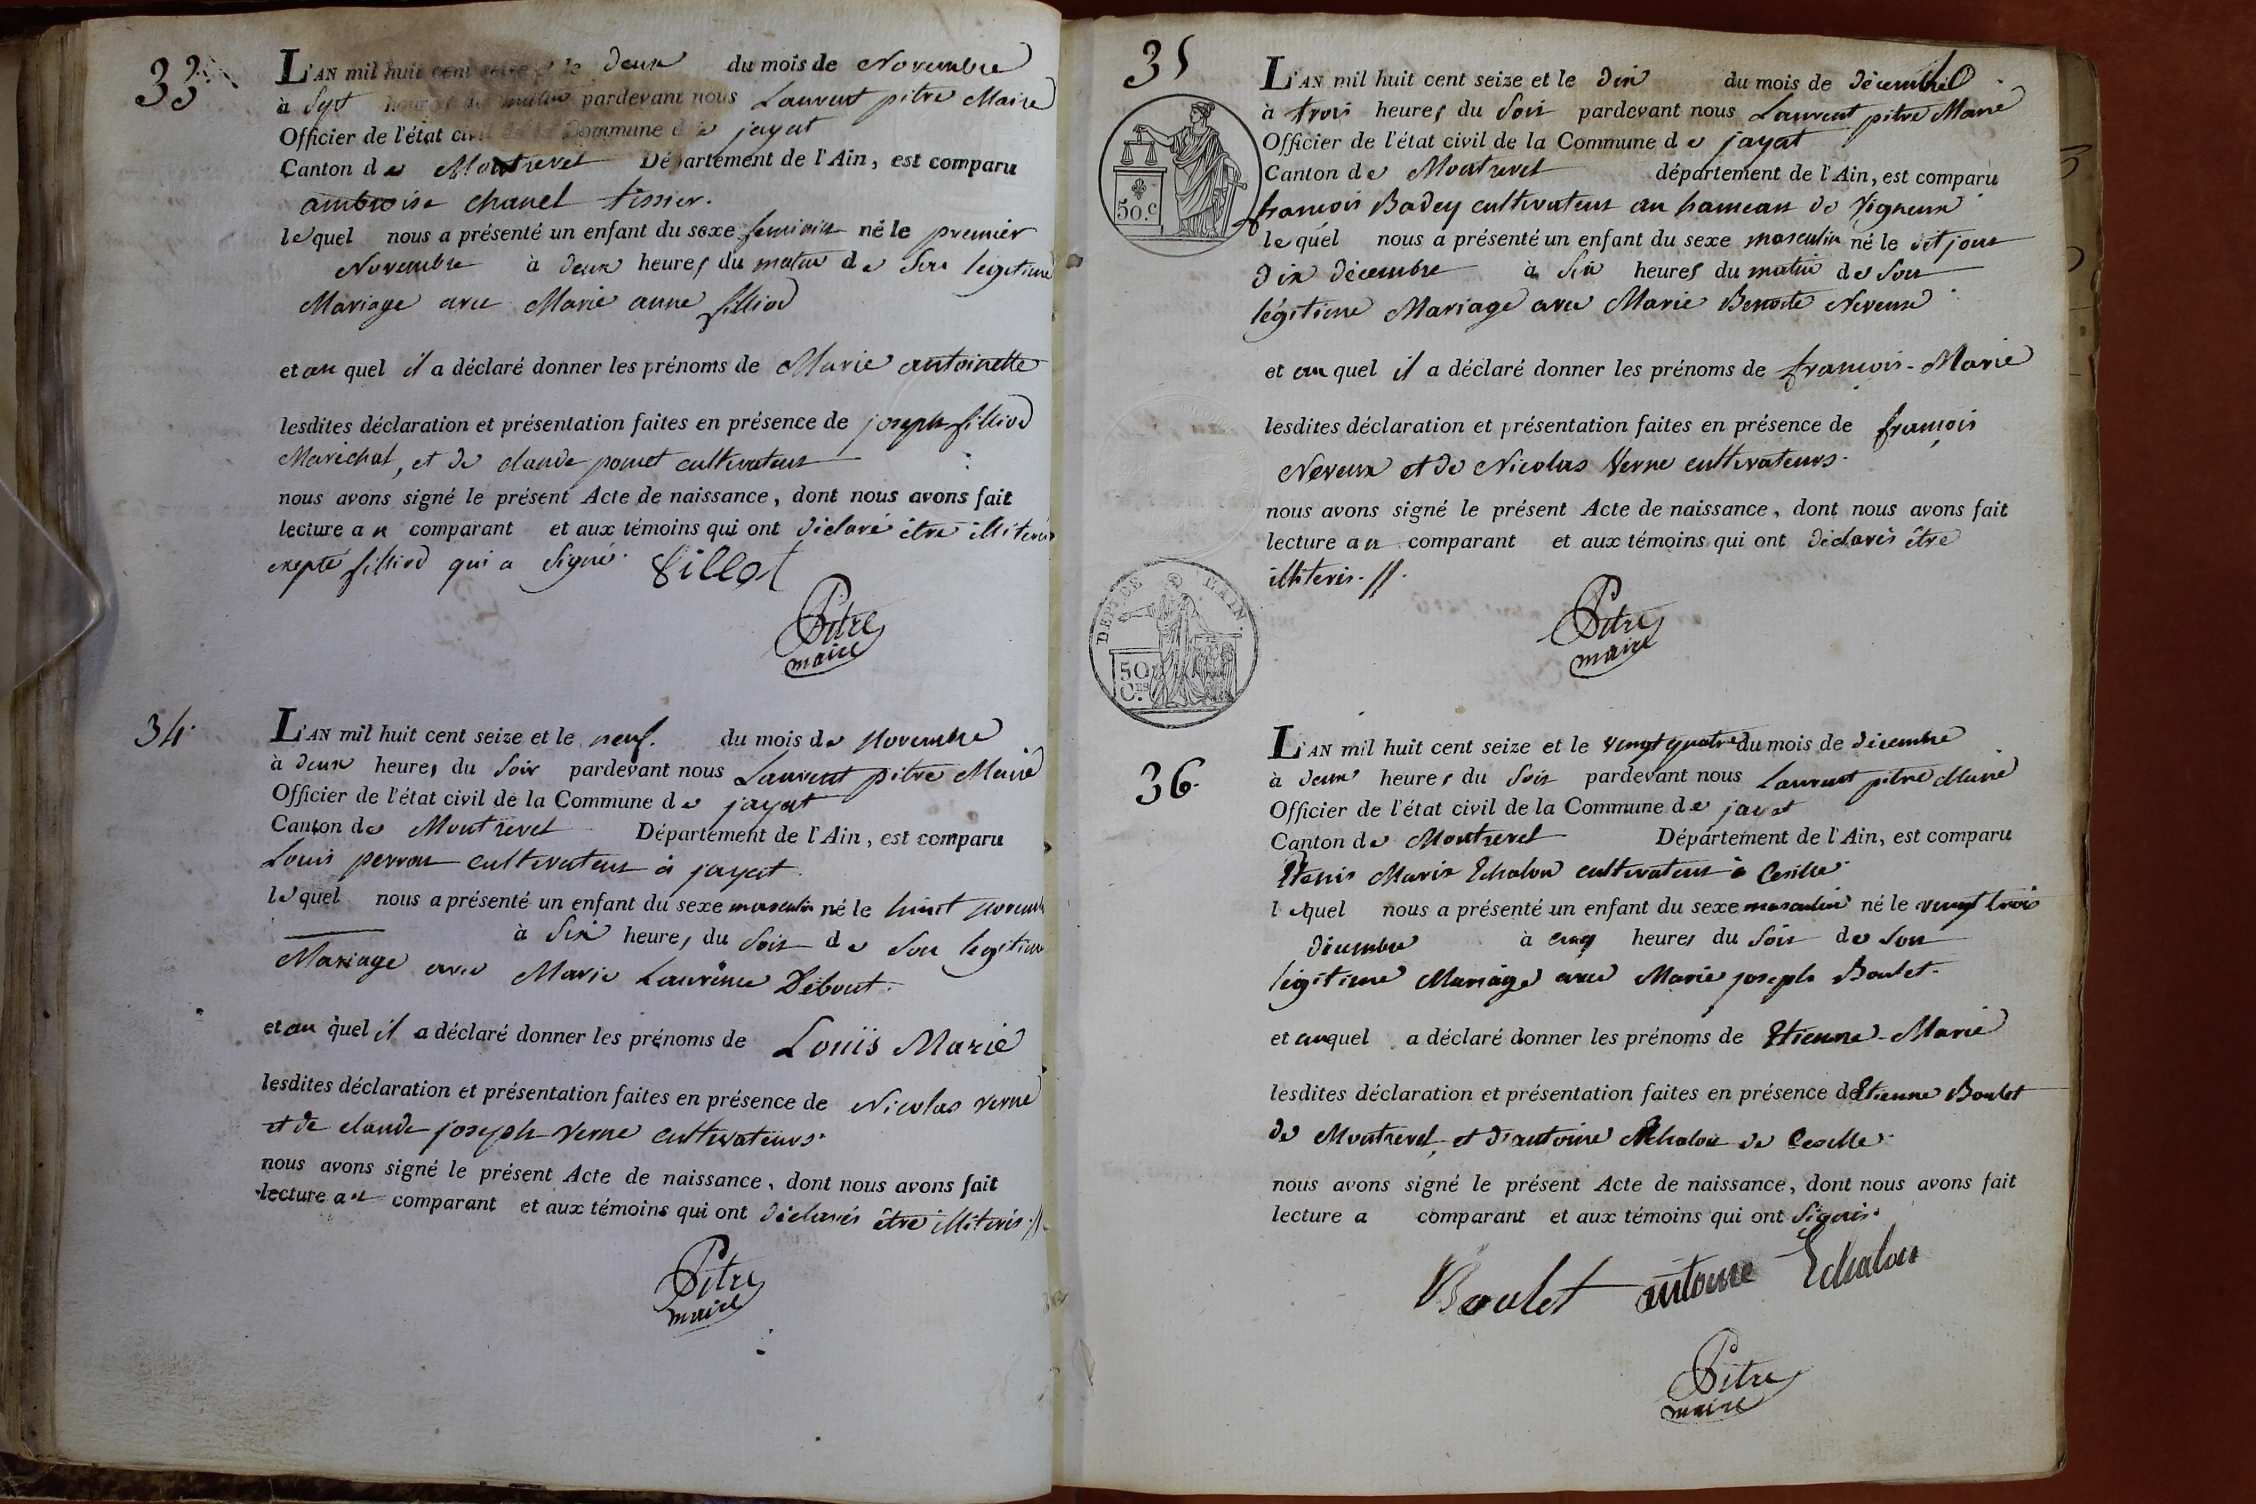 33
L'AN mil huit cent seize et le deux du mois de Novembre
à Sept heures du matin pardevant nous Laurent pitre Maire
Officier de l'état civil de la Commune de jayat
Canton de Montrevel Département de l'Ain, est comparu
ambroise chanel tissier.
lequel nous a présenté un enfant du sexe feminin né le premier
Novembre à deux heures du matin de Son légitime
Mariage avec Marie anne filliod
et au quel il a déclaré donner les prénoms de Marie antoinette
lesdites déclaration et présentation faites en présence de joseph filliod
Maréchal, et de claude pomet cultivateur
nous avons signé le présent Acte de naissance, dont nous avons fait
lecture au comparant et aux témoins qui ont déclaré être illiterés
exepté filliod qui a Signé. fillod
Pitre
maire
34.
L'AN mil huit cent seize et le neuf. du mois de Novembre
à deux heures du Soir pardevant nous Laurent pitre Maire
Officier de l'état civil de la Commune de jayat
Canton de Montrevel Département de l'Ain, est comparu
Louis perron cultivateur à jayat.
lequel nous a présenté un enfant du sexe masculin né le huit novembre
à Six heures du Soir de Son legitime
Mariage avec Marie Laurence Debout.
et au quel il a déclaré donner les prénoms de Louïs Marie
lesdites déclaration et présentation faites en présence de Nicolas verne
et de claude joseph verne cultivateurs.
nous avons signé le présent Acte de naissance, dont nous avons fait
lecture au comparant et aux témoins qui ont déclarés être illiterés.//.
Pitre
maire
35
L'AN mil huit cent seize et le dix du mois de décembre
à trois heures du Soir pardevant nous Laurent pitre Maire
Officier de l'état civil de la Commune de jayat
Canton de Montrevel département de l'Ain, est comparu
50.c
françois Badey cultivateur au hameau de Vigneux
lequel nous a présenté un enfant du sexe masculin né le dit jour
dix décembre à Six heures du matin de Son
légitime Mariage avec Marie Benoite Neveux
et au quel il a déclaré donner les prénoms de françois-Marie
lesdites déclaration et présentation faites en présence de françois
Neveux et de Nicolas Verne cultivateurs.
nous avons signé le présent Acte de naissance, dont nous avons fait
lecture au comparant et aux témoins qui ont déclarés être
illiterés.//.
DEPT DE L'AIN.
50
Ces
Pitre
maire
36.
L'AN mil huit cent seize et le vingt quatre du mois de décembre
à deux heures du Soir pardevant nous Laurent pitre Maire
Officier de l'état civil de la Commune de jayat
Canton de Montrevel Département de l'Ain, est comparu
Denis Marie Echalon cultivateur à Cesille.
lequel nous a présenté un enfant du sexe masculin né le vingt trois
décembre à cinq heures du Soir de Son
légitime Mariage avec Marie joseph Boulet.
et auquel a déclaré donner les prénoms de Etienne-Marie
lesdites déclaration et présentation faites en présence de Etienne Boulet
de Montrevel, et d'antoine Echalon de Cesille.
nous avons signé le présent Acte de naissance, dont nous avons fait
lecture a comparant et aux témoins qui ont Signés.
Boulet antoine Echalon
Pitre
maire